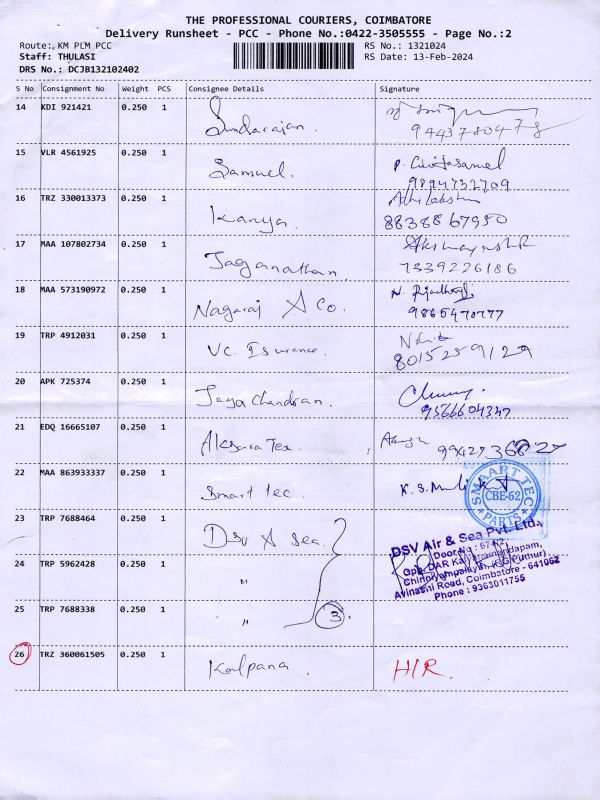 THE PROFESSIONAL COURIERS, COIMBATORE
Delivery Runsheet - PCC - Phone No.:0422-3505555 - Page No.:2
Route: KM PLM PCC RS No.: 1321024
Staff: THULASI RS Date: 13-Feb-2024
DRS No.: DCJB132102402
S No Consignment No Weight PCS Consignee Details Signature
14 KDI 921421 0.250 1 Sundarajan.
9443780478
15 VLR 4561925 0.250 1 Samuel.
9894732709
16 TRZ 330013373 0.250 1 Kanya.
8838867950
17 MAA 107802734 0.250 1 Jaganathan.
7339226186
18 MAA 573190972 0.250 1 Nagaraj A Co.
9865470777
19 TRP 4912031 0.250 1 VC. Isurance.
8015259129
20 APK 725374 0.250 1 Jaga Chandran.
9566604347
21 EDQ 16665107 0.250 1 Aksara Tex.
22 MAA 863933337 0.250 1 Smart tec.
SMAART TEC
CBE-62
PARTS
23 TRP 7688464 0.250 1 DSV A Sea.
DSV Air & Sea Pvt. Ltd.,
Avinashi Road, Coimbatore - 641062
Phone : 9363011755
24 TRP 5962428 0.250 1 "
25 TRP 7688338 0.250 1 " 3
26 TRZ 360061505 0.250 1 Kalpana. H/R.